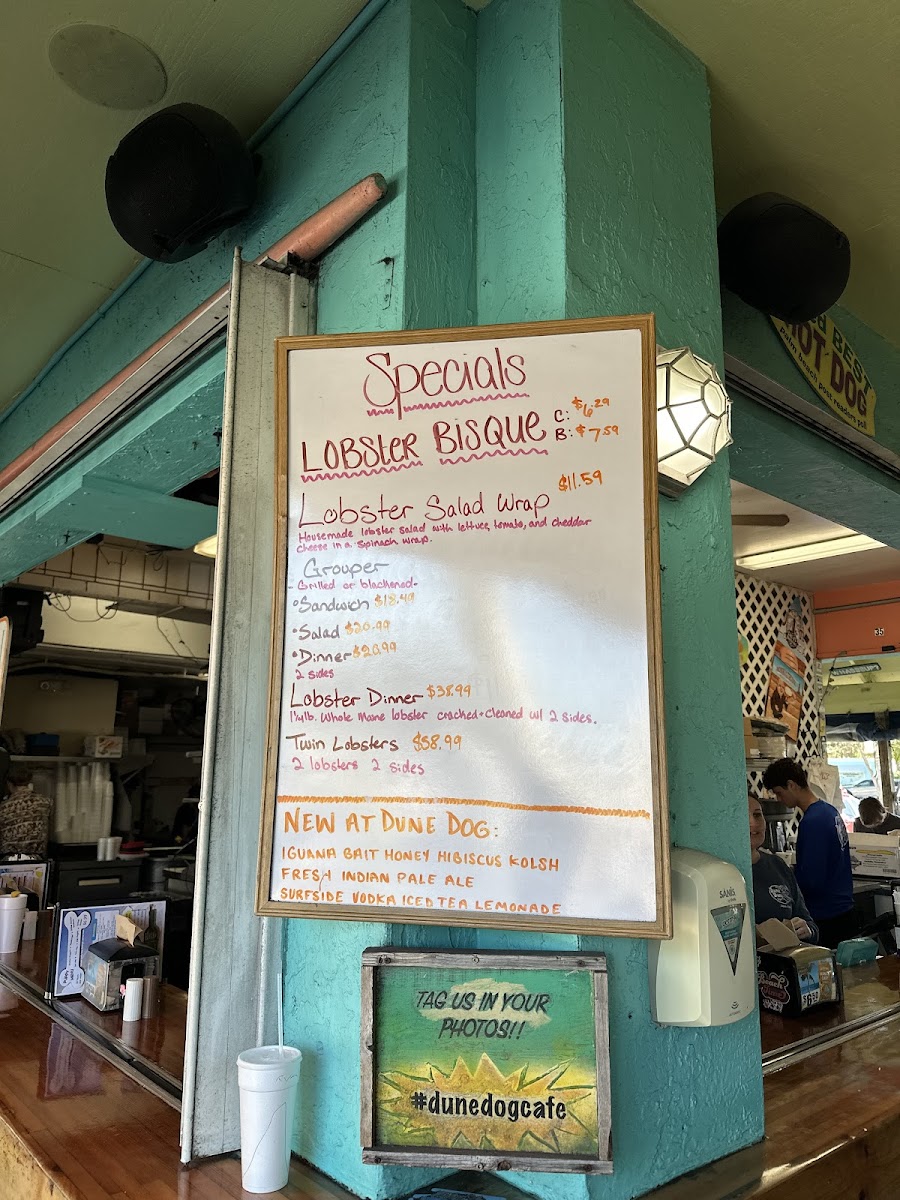 Specials
LOBSTER BISQUE C: $6.29
B: $7.59
Lobster Salad Wrap $11.59
Housemade lobster salad with lettuce, tomato, and cheddar
cheese in a spinach wrap.
Grouper
- Grilled or blackened -
•Sandwich $18.49
•Salad $20.99
•Dinner $20.99
2 sides
Lobster Dinner $38.99
1¼lb. Whole Maine lobster cracked + cleaned w/ 2 sides.
Twin Lobsters $58.99
2 lobsters 2 sides
NEW AT DUNE DOG:
IGUANA BAIT HONEY HIBISCUS KOLSH
FRESH INDIAN PALE ALE
SURFSIDE VODKA ICED TEA LEMONADE
TAG US IN YOUR
PHOTOS!!
#dunedogcafe
BEST
HOT DOG
palm beach post readers poll
35